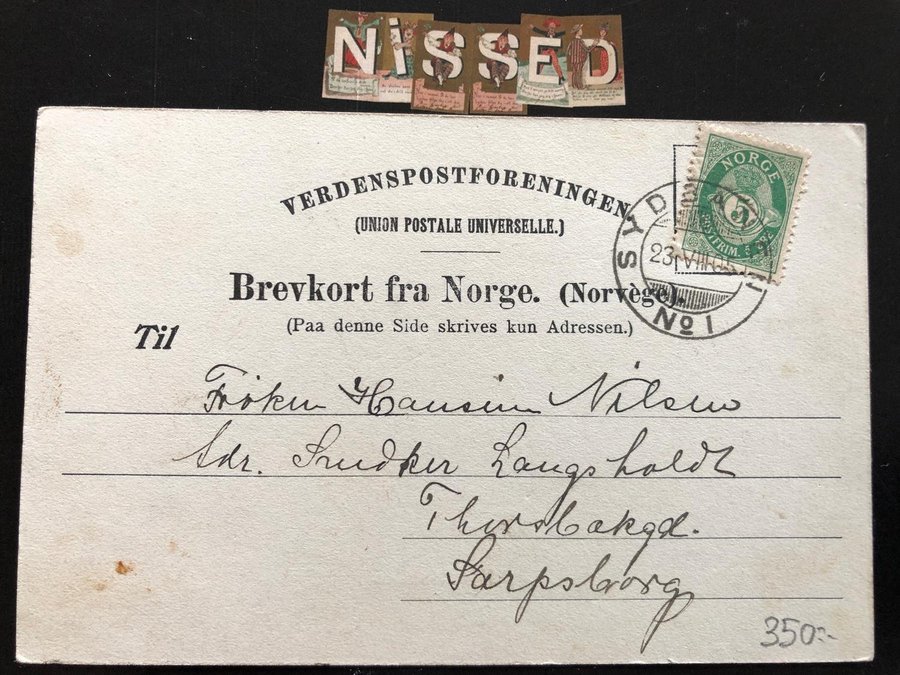 NiSSED
VERDENSPOSTFORENINGEN
(UNION POSTALE UNIVERSELLE.)
Brevkort fra Norge. (Norvège).
(Paa denne Side skrives kun Adressen.)
NORGE
5
POSTFRIM. 5
SYD
23 VII
No 1
Til
Frøken Hansine Nilsen
Adr. Snedker Langsholdt
Thorsbakgd.
Sarpsborg
350:-